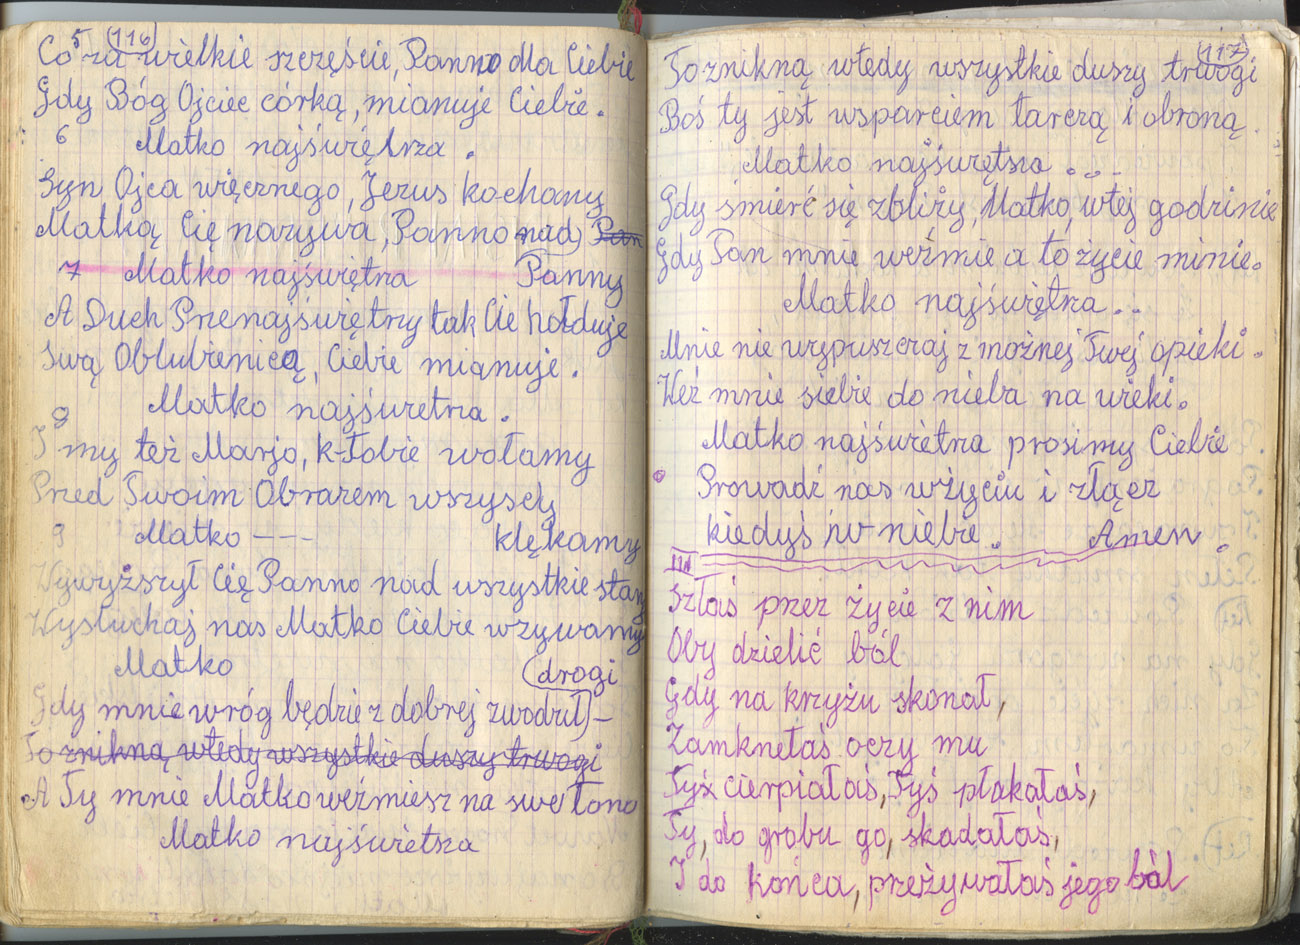 (116)
5
Co za wielkie szczęście, Panno dla Ciebie
Gdy Bóg Ojciec córką, mianuje Ciebie.
6 Matko najświętrza.
Syn Ojca więcznego, Jezus kochany
Matką Cię nazywa, Panno nad) Pan
7 Matko najświętrza Panny
A Duch Przenajświętrzy tak Cie hołduje
Swą Oblubienicą, Ciebie mianuje.
Matko najświetrza.
8
I my też Marjo, k-Tobie wołamy
Przed Twoim Obrazem wszyscy
9 Matko - - - klękamy
Wywyższył Cię Panno nad wszystkie stany
Wysłuchaj nas Matko Ciebie wzywamy
Matko (drogi
Gdy mnie wróg będzie z dobrej zwodził) -
To znikną wtedy wszystkie duszy trwogi
A Ty mnie Matko weźmiesz na swe łono
Matko najświetsza
(117)
To znikną wtedy wszystkie duszy trwogi
Boś ty jest wsparciem tarczą i obroną.
Matko najświętsza . . .
Gdy śmierć się zbliży, Matko, wtej godzinie
Gdy Pan mnie weźmie a to życie minie.
Matko najświętrza . .
Mnie nie wypuszczaj z możnej Twej opieki.
Weź mnie siebie do nieba na wieki.
Matko najświetrza prosimy Ciebie
Prowadź nas wżyciu i złącz
kiedyś w niebie. Amen.
Szłaś przez życie z nim
Oby dzielić ból
Gdy na krzyżu skonał,
Zamknełaś oczy mu
Tyś cierpiałaś, Tyś płakałaś,
Ty, do grobu go, skadałaś,
I do końca, przeżywałaś jego ból